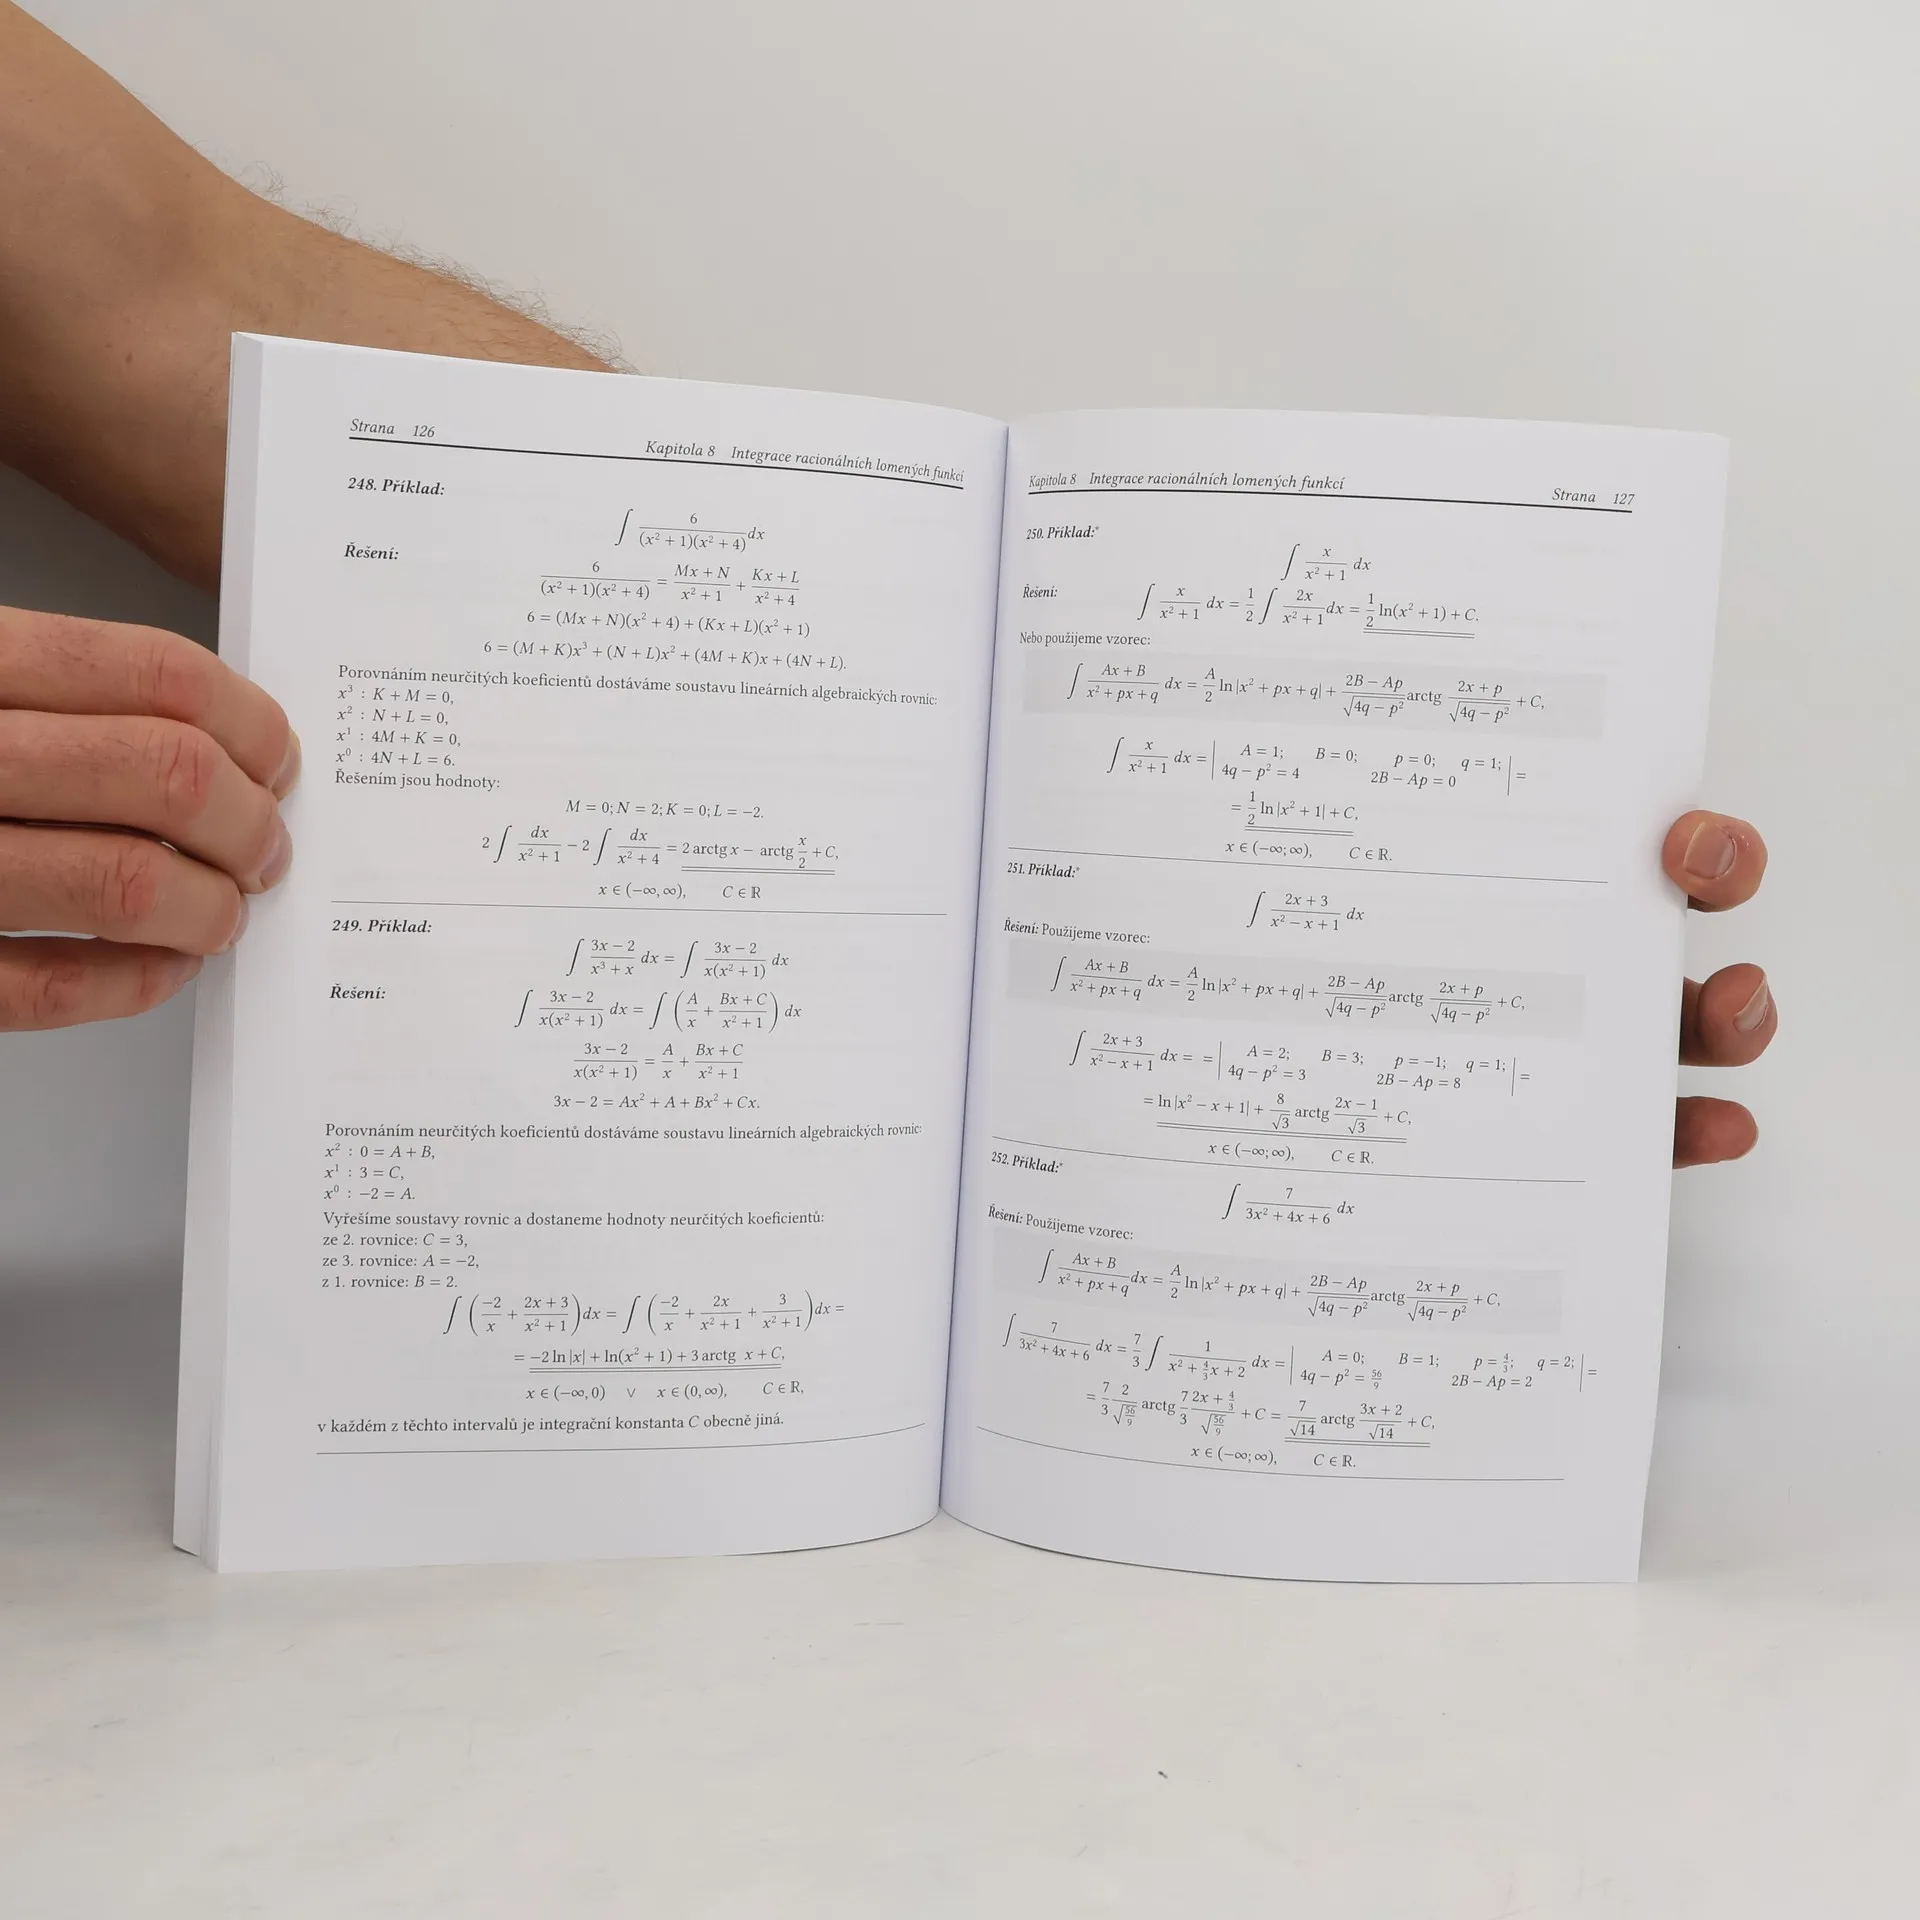 Strana 126
Kapitola 8 Integrace racionálních lomených funkcí
248. Příklad:
∫ 6/((x² + 1)(x² + 4)) dx
Řešení:
6/((x² + 1)(x² + 4)) = (Mx + N)/(x² + 1) + (Kx + L)/(x² + 4)
6 = (Mx + N)(x² + 4) + (Kx + L)(x² + 1)
6 = (M + K)x³ + (N + L)x² + (4M + K)x + (4N + L).
Porovnáním neurčitých koeficientů dostáváme soustavu lineárních algebraických rovnic:
x³ : K + M = 0,
x² : N + L = 0,
x¹ : 4M + K = 0,
x⁰ : 4N + L = 6.
Řešením jsou hodnoty:
M = 0; N = 2; K = 0; L = −2.
2 ∫ dx/(x² + 1) − 2 ∫ dx/(x² + 4) = 2 arctg x − arctg x/2 + C,
x ∈ (−∞, ∞), C ∈ ℝ
249. Příklad:
∫ (3x − 2)/(x³ + x) dx = ∫ (3x − 2)/(x(x² + 1)) dx
Řešení:
∫ (3x − 2)/(x(x² + 1)) dx = ∫ (A/x + (Bx + C)/(x² + 1)) dx
(3x − 2)/(x(x² + 1)) = A/x + (Bx + C)/(x² + 1)
3x − 2 = Ax² + A + Bx² + Cx.
Porovnáním neurčitých koeficientů dostáváme soustavu lineárních algebraických rovnic:
x² : 0 = A + B,
x¹ : 3 = C,
x⁰ : −2 = A.
Vyřešíme soustavy rovnic a dostaneme hodnoty neurčitých koeficientů:
ze 2. rovnice: C = 3,
ze 3. rovnice: A = −2,
z 1. rovnice: B = 2.
∫ (−2/x + (2x + 3)/(x² + 1)) dx = ∫ (−2/x + 2x/(x² + 1) + 3/(x² + 1)) dx =
= −2 ln |x| + ln(x² + 1) + 3 arctg x + C,
x ∈ (−∞, 0) ∨ x ∈ (0, ∞), C ∈ ℝ,
v každém z těchto intervalů je integrační konstanta C obecně jiná.
Kapitola 8 Integrace racionálních lomených funkcí
Strana 127
250. Příklad:*
∫ x/(x² + 1) dx
Řešení:
∫ x/(x² + 1) dx = 1/2 ∫ 2x/(x² + 1) dx = 1/2 ln(x² + 1) + C.
Nebo použijeme vzorec:
∫ (Ax + B)/(x² + px + q) dx = A/2 ln |x² + px + q| + (2B − Ap)/√(4q − p²) arctg (2x + p)/√(4q − p²) + C,
∫ x/(x² + 1) dx = | A = 1; B = 0; p = 0; q = 1; | =
4q − p² = 4 2B − Ap = 0
= 1/2 ln |x² + 1| + C,
x ∈ (−∞; ∞), C ∈ ℝ.
251. Příklad:*
∫ (2x + 3)/(x² − x + 1) dx
Řešení: Použijeme vzorec:
∫ (Ax + B)/(x² + px + q) dx = A/2 ln |x² + px + q| + (2B − Ap)/√(4q − p²) arctg (2x + p)/√(4q − p²) + C,
∫ (2x + 3)/(x² − x + 1) dx = = | A = 2; B = 3; p = −1; q = 1; | =
4q − p² = 3 2B − Ap = 8
= ln |x² − x + 1| + 8/√3 arctg (2x − 1)/√3 + C,
x ∈ (−∞; ∞), C ∈ ℝ.
252. Příklad:*
∫ 7/(3x² + 4x + 6) dx
Řešení: Použijeme vzorec:
∫ (Ax + B)/(x² + px + q) dx = A/2 ln |x² + px + q| + (2B − Ap)/√(4q − p²) arctg (2x + p)/√(4q − p²) + C,
∫ 7/(3x² + 4x + 6) dx = 7/3 ∫ 1/(x² + 4/3 x + 2) dx = | A = 0; B = 1; p = 4/3; q = 2; | =
4q − p² = 56/9 2B − Ap = 2
= 7/3 2/√(56/9) arctg 7/3 (2x + 4/3)/√(56/9) + C = 7/√14 arctg (3x + 2)/√14 + C,
x ∈ (−∞; ∞), C ∈ ℝ.